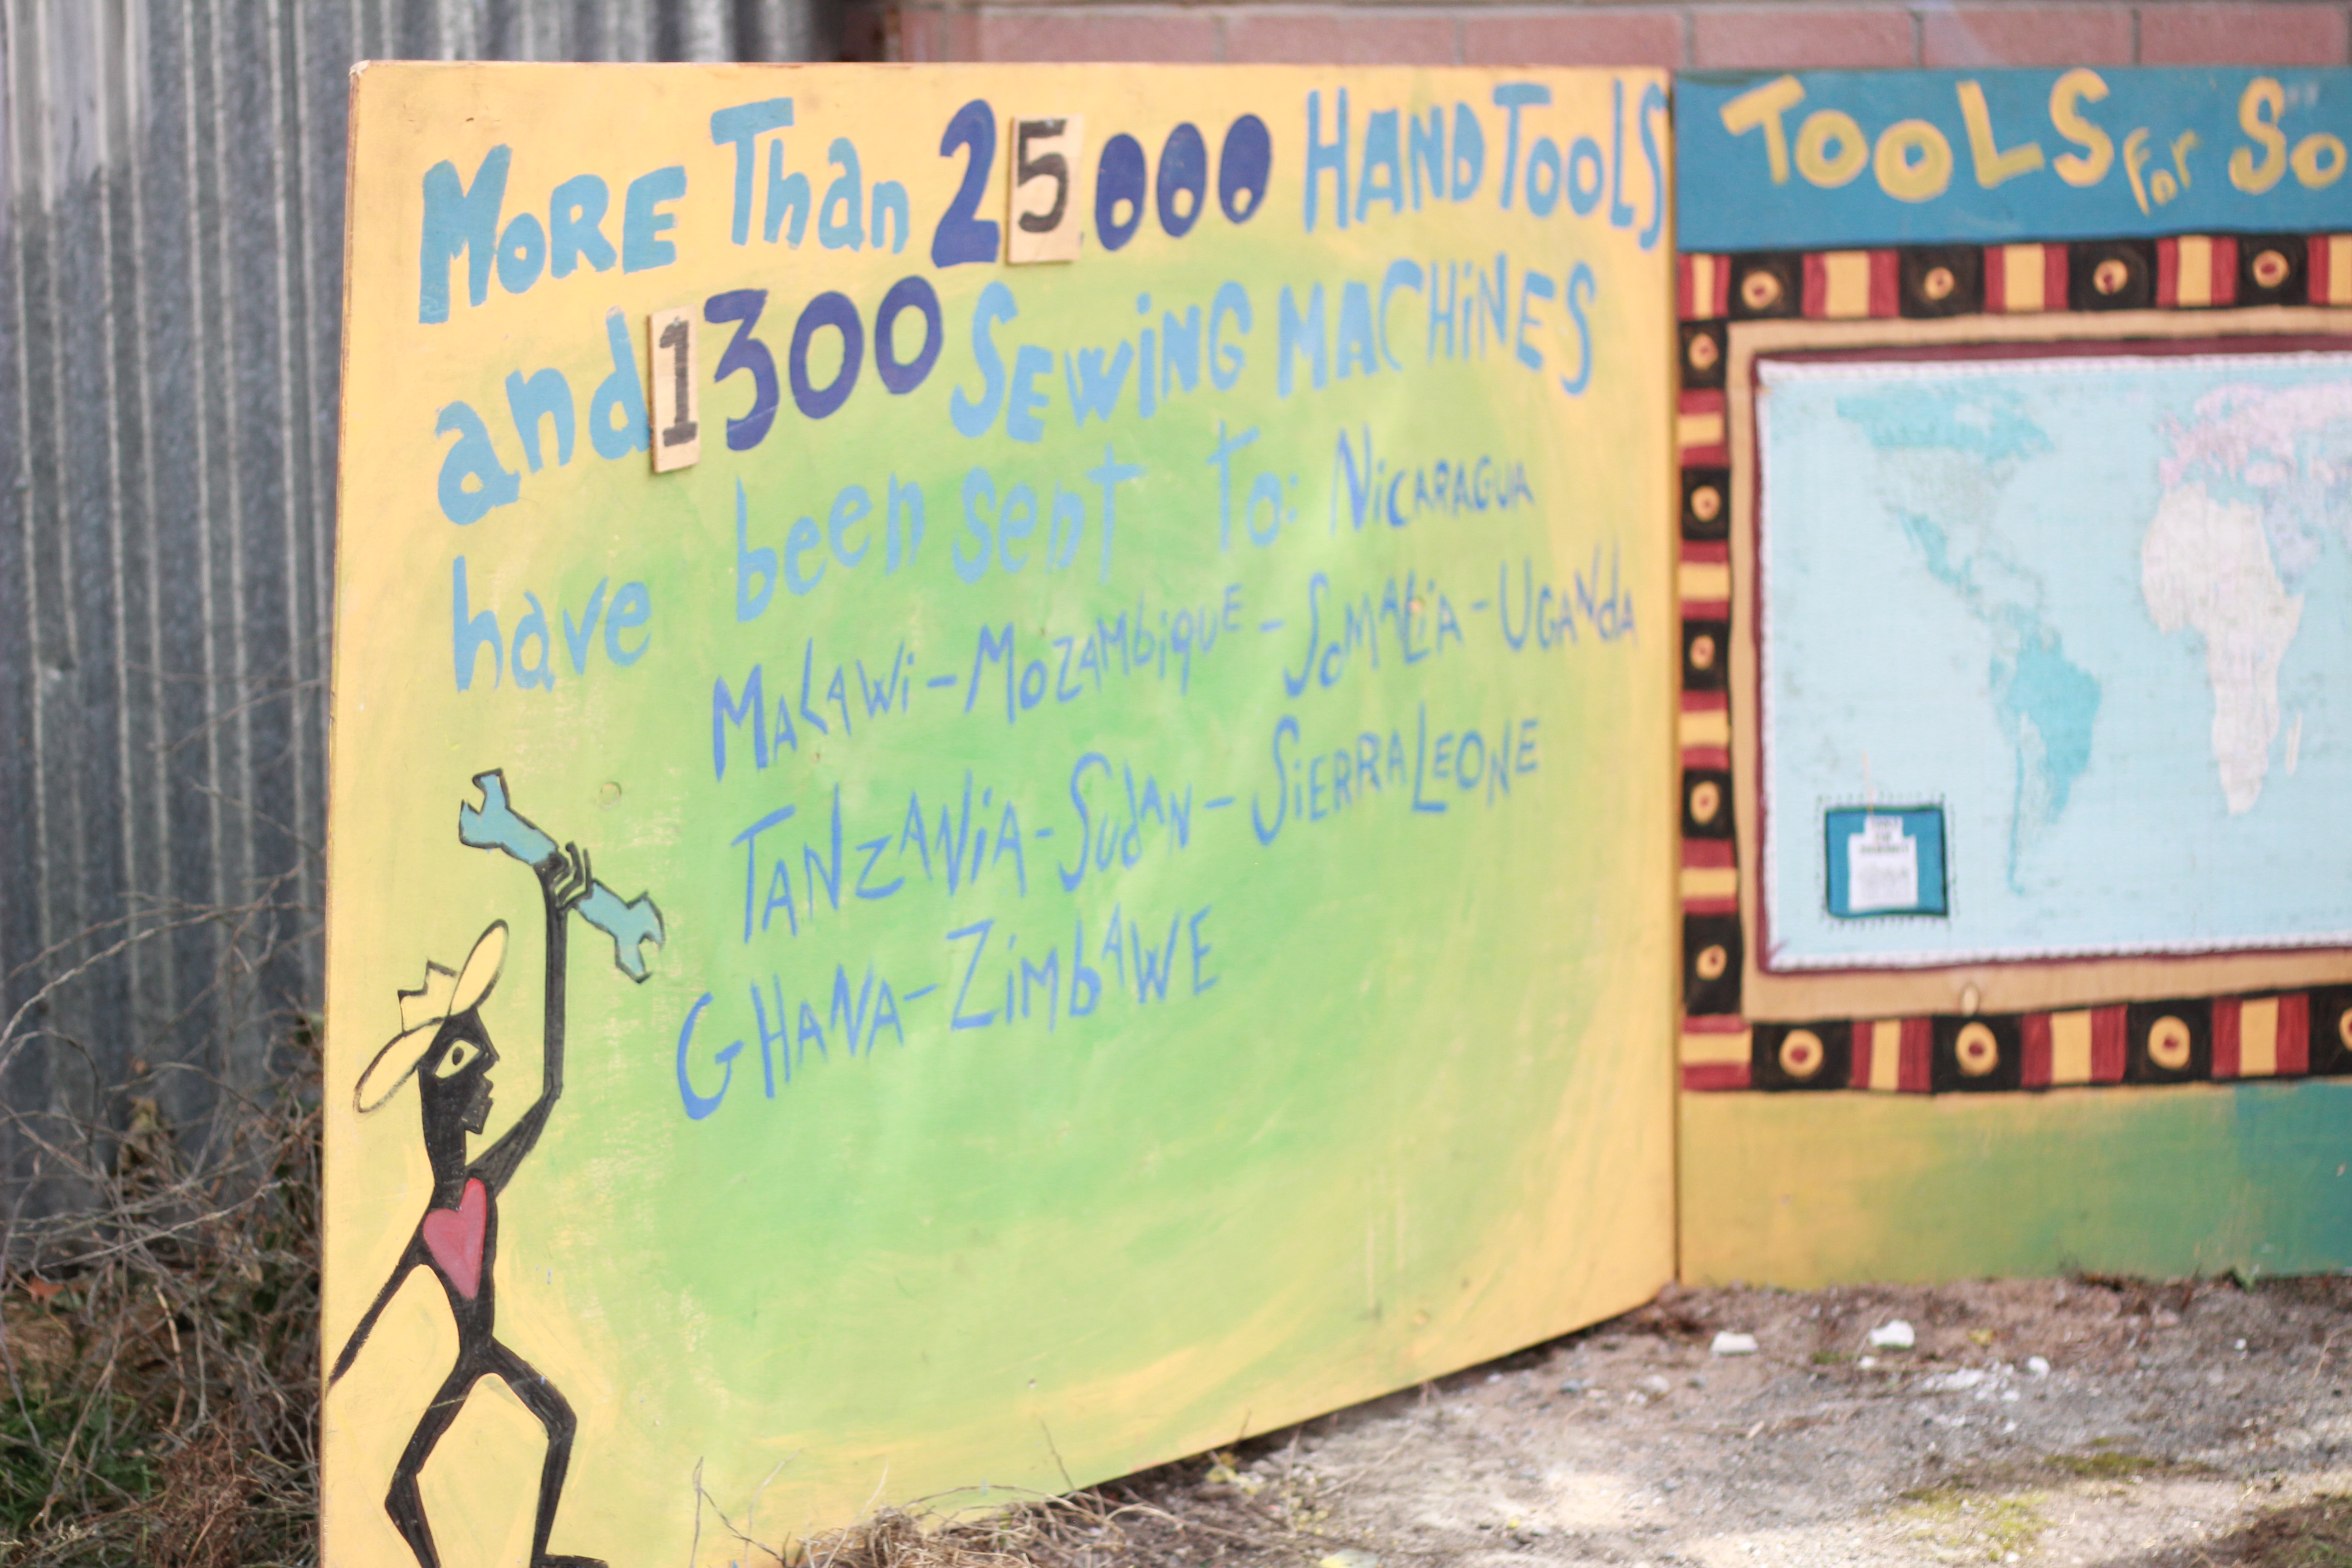 MORE Than 25000 HAND TOOLS
and 1300 SEWiNG MACHiNES
have been sent to: NiCARAGUA
MALAWi - MOZAMbiqUE - SOMALiA - UGANdA
TANZANiA - SudAN - SiERRA LEONE
GHANA - ZiMbAWE
TOOLS For So